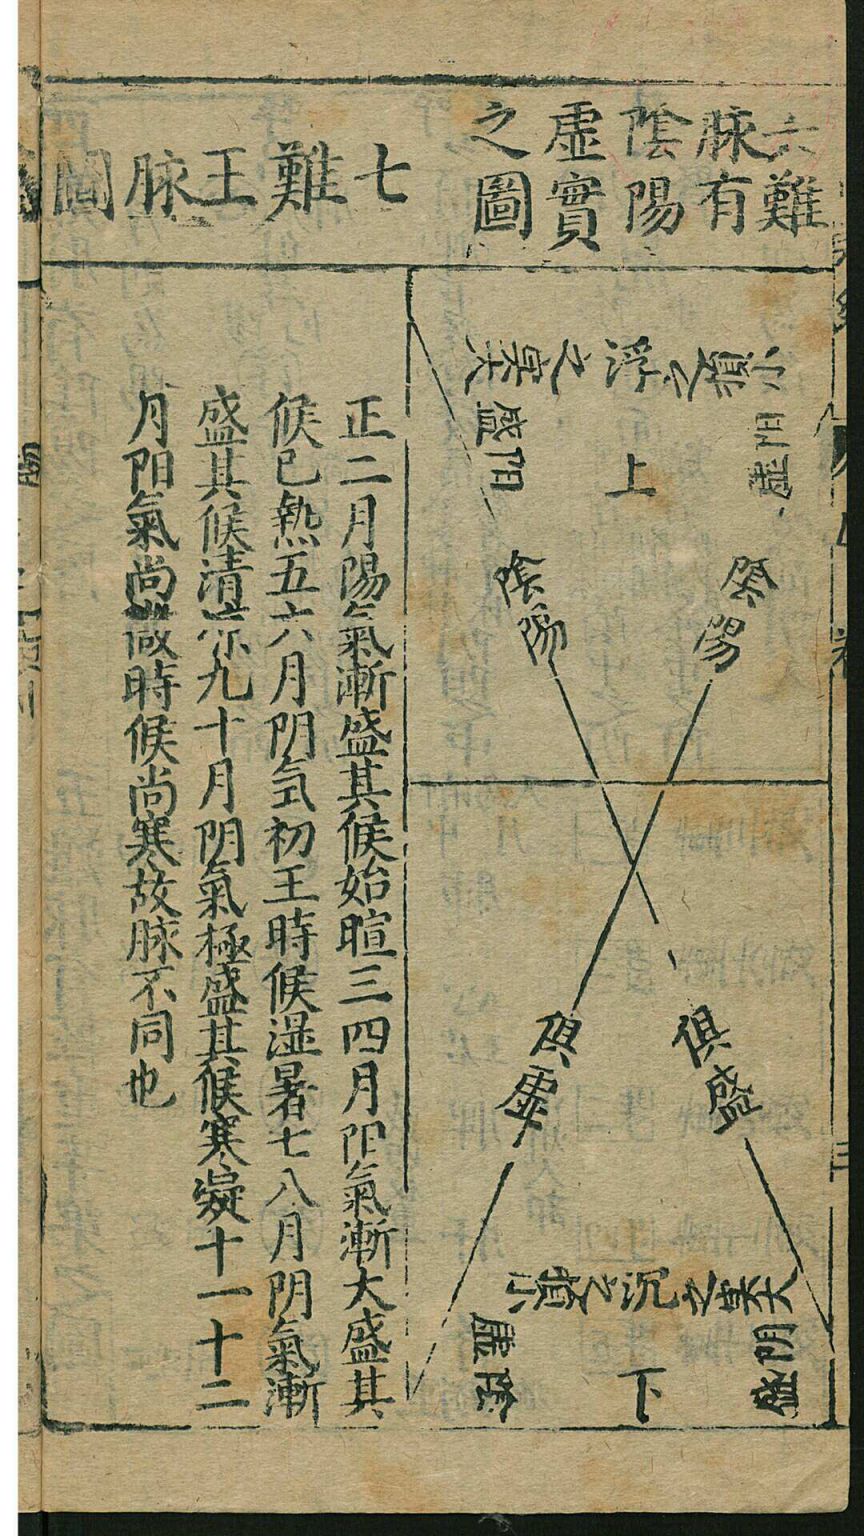 六難
脉有
陰陽
虛實
之圖
小損之
浮
之實大
陽虛
上
陽盛
陰陽
陰陽
俱盛
俱虛
大實之
沉
之損小
阴盛
下
虛陰
七難王脉圖
正二月陽氣漸盛其候始暄三四月阳氣漸大盛其
候已熱五六月阴気初王時候湿暑七八月阴氣漸
盛其候清凉九十月阴氣極盛其候寒凝十一十二
月阳氣尚微時候尚寒故脉不同也